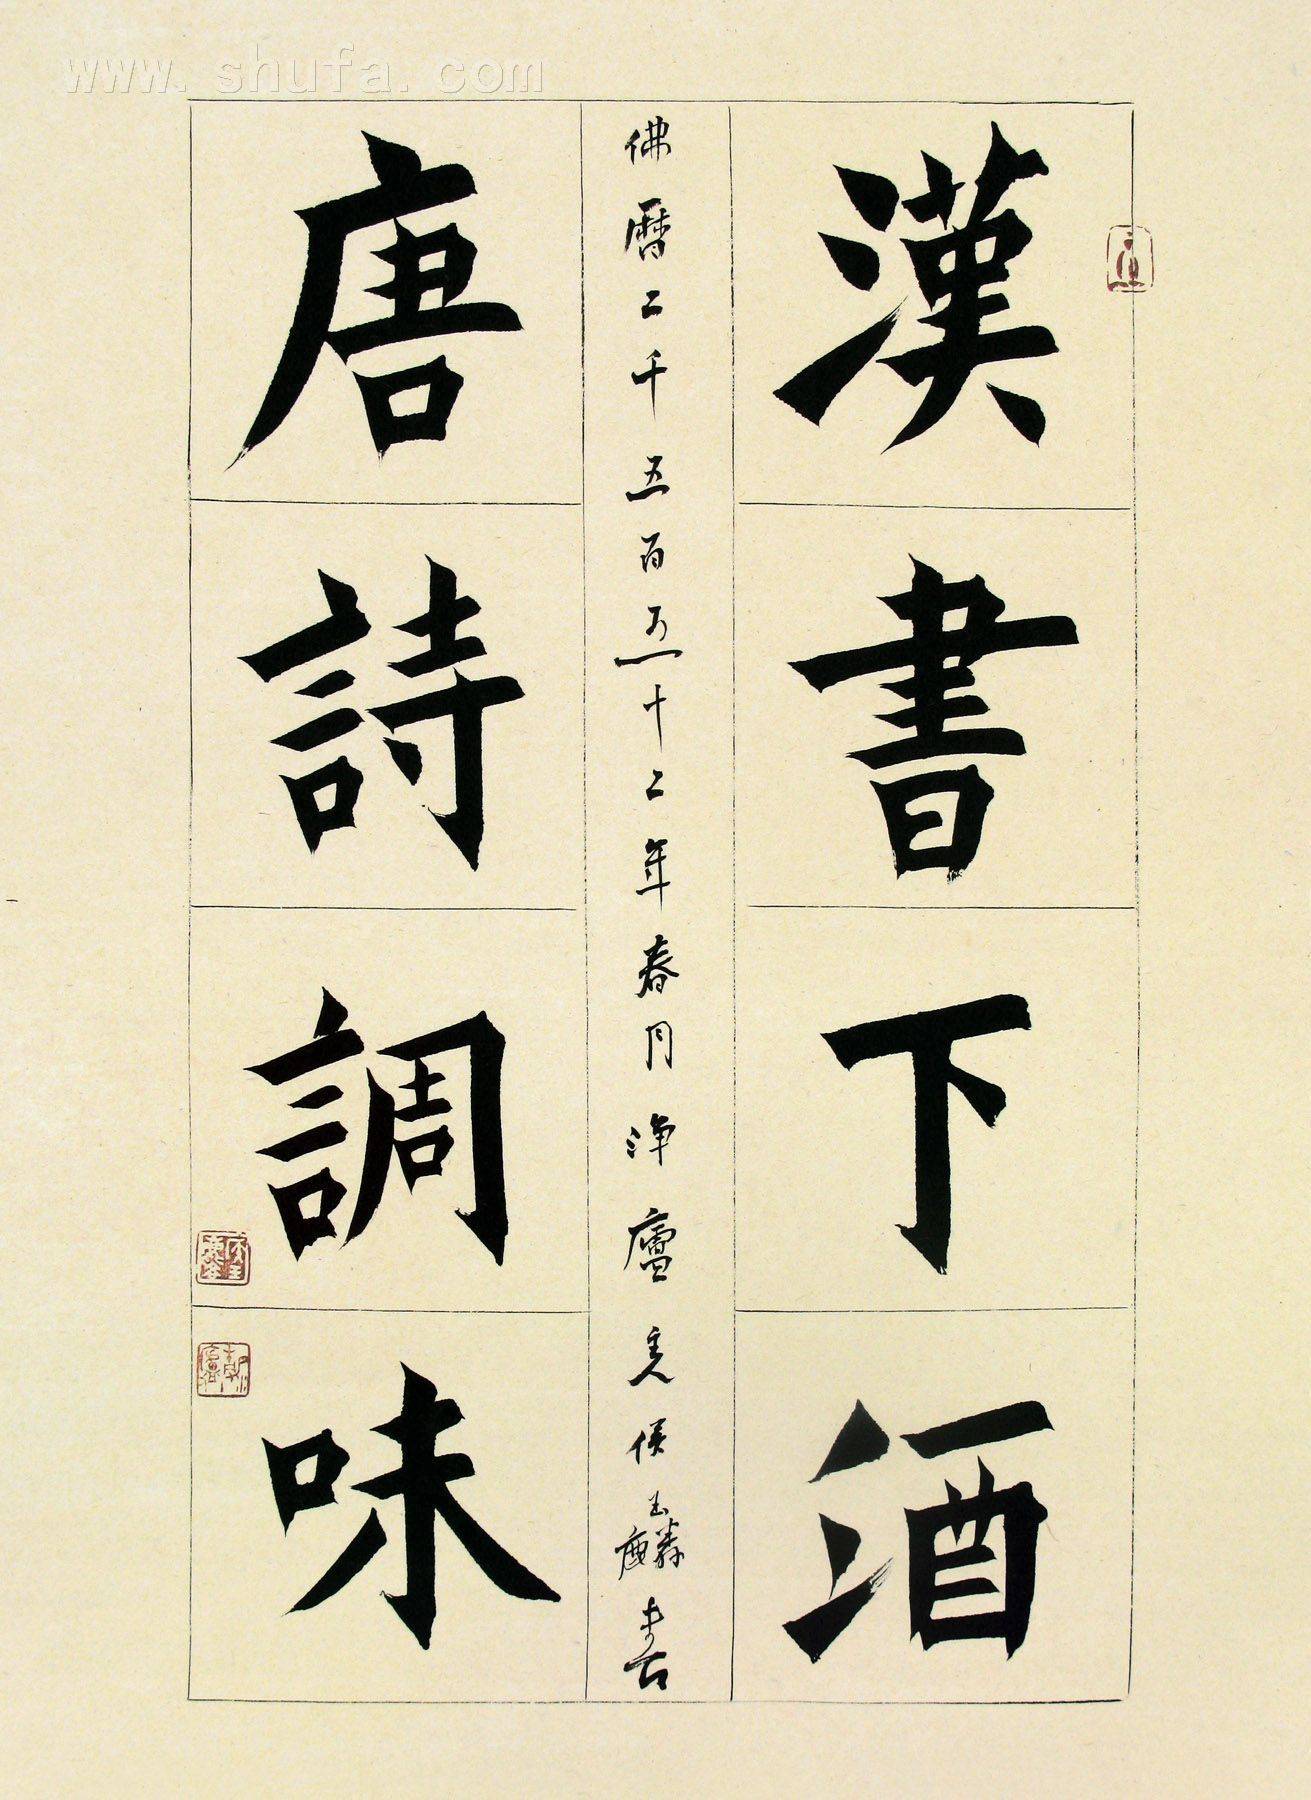 www.shufa.com
漢書下酒
佛曆二千五百五十二年春月淨廬主人侯玉麟書
唐詩調味